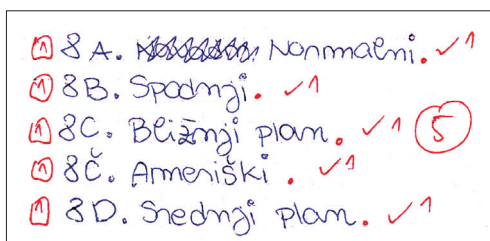 1 8A. Normalni. ✓1
1 8B. Spodnji. ✓1
1 8C. Bližnji plan. ✓1 5
1 8Č. Ameriški. ✓1
1 8D. Srednji plan. ✓1